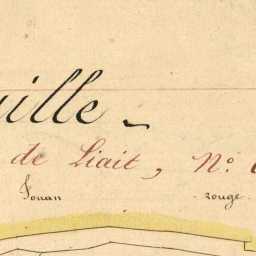 uille
de Liait, N.o
Fouan rouge.